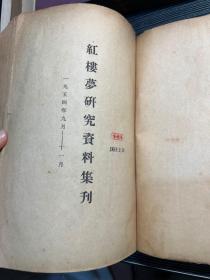 紅樓夢研究資料集刊
一九五四年九月——十一月